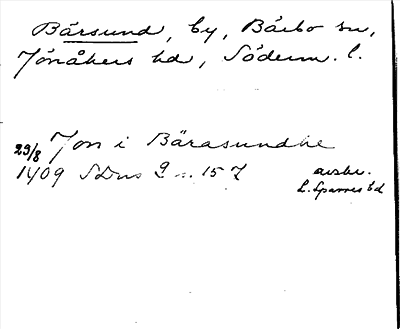 Bärsund, by, Bärbo sn,
Jönåkers hd, Söderm. l.
29/8 Jon i Bärasundhe
1409 SDns 2 s. 157 avskr.
L. Sparres bd